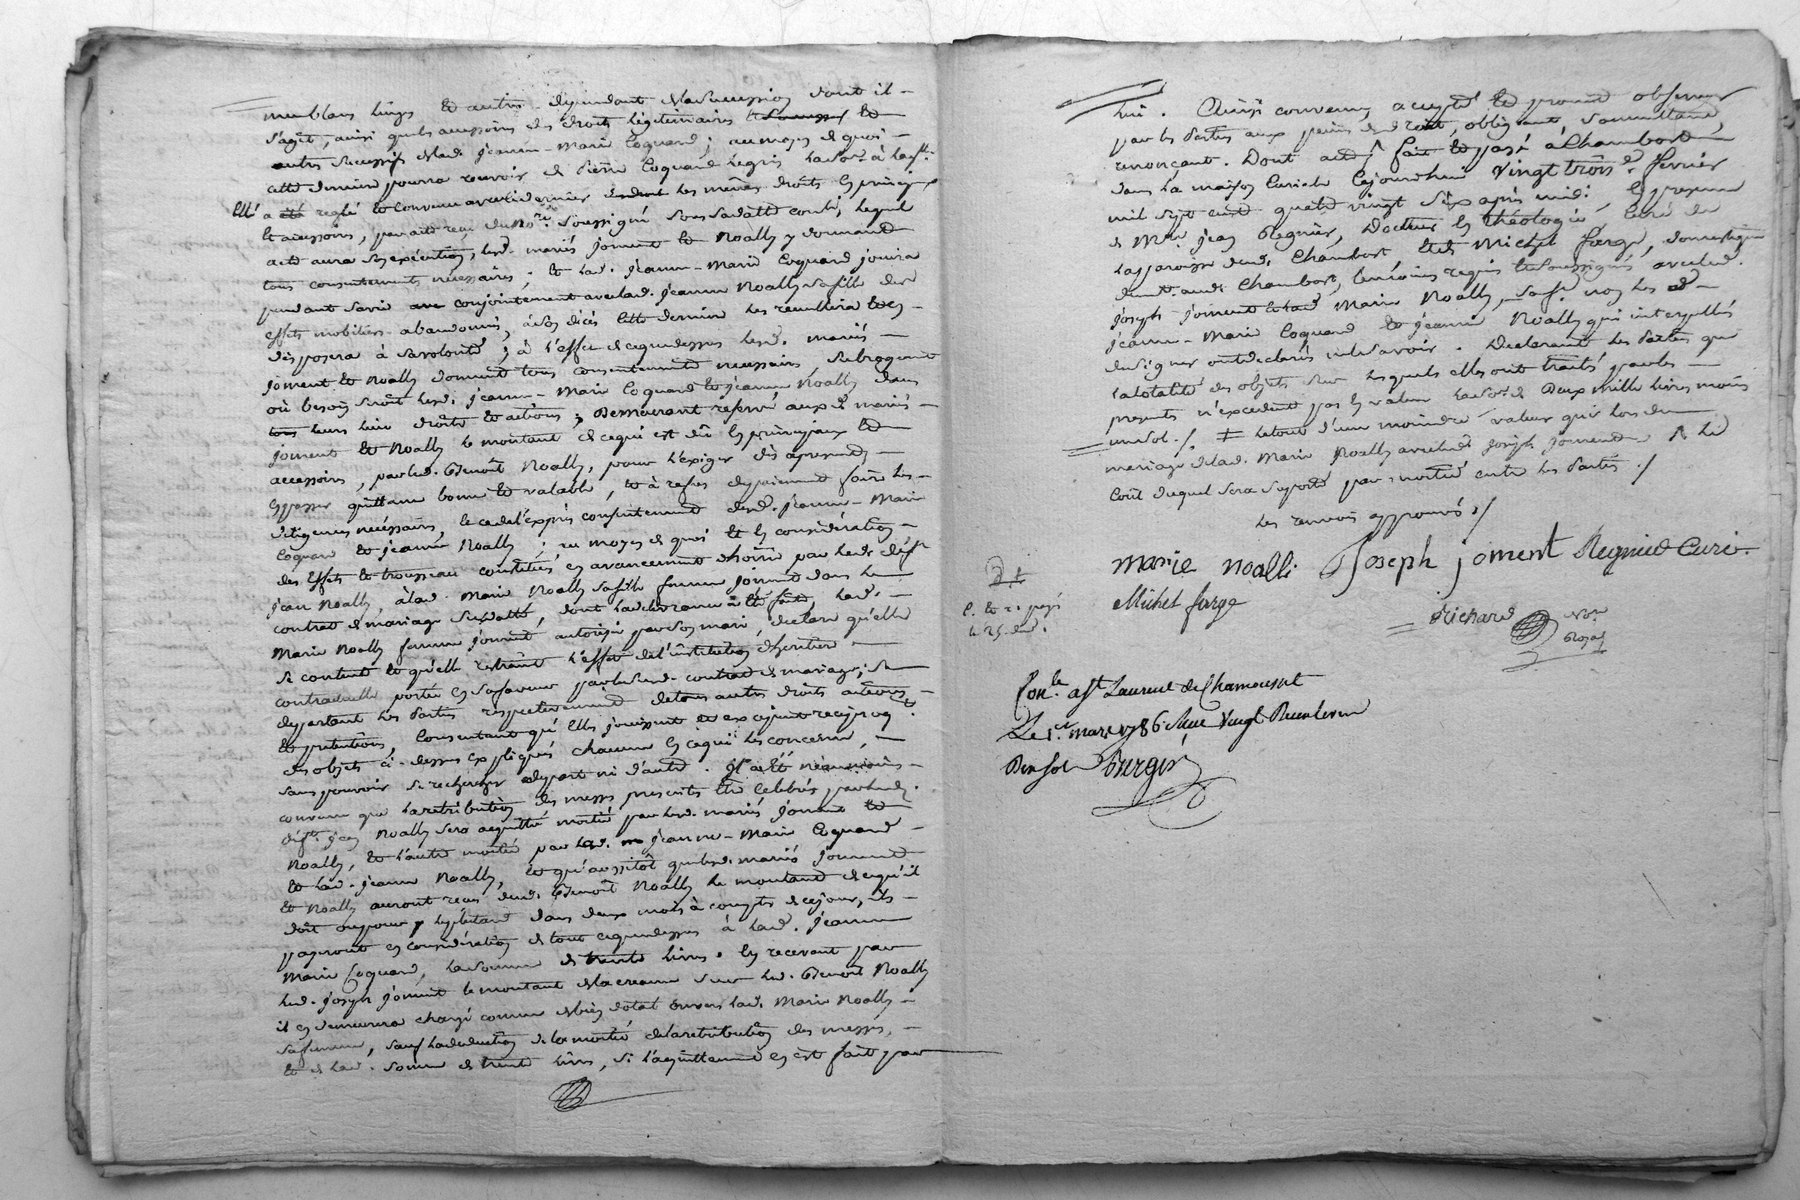 meubles linges et autres dependant de la succession dont il
s'agit, ainsi que les accessoires des droits légitimaires et
autres successifs de lad. jeanne-Marie Coquard ; au moyen de quoi
cette derniere pourra recevoir de pierre Coquard
Elle a reglé et convenu avec ce dernier les mêmes droits en principal
et accessoires, par acte reçu du No.re soussigné sous sa datte controlé, lequel
acte aura son exécution, lesd. mariés joment et Noally y donnent
tous consentements nécessaires ; et lad. jeanne-Marie Coquard jouira
pendant sa vie conjointement avec lad. jeanne Noally sa fille des
effets mobiliers abandonnés, à son décès cette derniere les recueillira et en
disposera à sa volonté, à l'effet de ce que dessus lesd. mariés
joment et Noally donnent tous consentements nécessaires, subrogeant
où besoin seroit lesd. jeanne-Marie Coquard et jeanne Noally dans
leurs lieu droits et actions ; Demeurant reservé auxd. mariés
joment et Noally le montant de ce qui est dû en principaux et
accessoires, par led. Benoît Noally, pour l'exiger dès à present,
en passer quittance bonne et valable, et à refus de paiement faire les
diligences nécessaires, le ce de l'exprès consentement desd. jeanne-Marie
Coquard et jeanne Noally ; au moyen de quoi et en considération
des Effets et trousseau constitués en avancement d'hoirie par led. déft
jean Noally, à lad. Marie Noally sa fille femme joment dans le
contrat de mariage susdatté, dont la délivrance a été faite, lad.
Marie Noally femme joment autorisée par son mari, declare qu'elle
se contente et qu'elle restraint l'effet de l'institution d'heritier
contractuelle portée en sa faveur par le susd. contrat de mariage ; se
departant les Parties respectivement de tous autres droits actions
et pretentions, Consentant qu'Elles jouissent et exigent reciproq.t
des objets ci-dessus expliqués chacune en ce qui les concerne,
sans pouvoir se rechercher de part ni d'autre. Il a été néanmoins
convenu que la retribution des messes prescrites être célébrés par led.
déft jean Noally sera acquittée moitié par lesd. mariés joment et
Noally, et l'autre moitié par lad. jeanne-Marie Coquard
et lad. jeanne Noally, et qu'aussitôt que lesd. mariés joment
et Noally auront reçu dud. Benoît Noally le montant de ce qu'il
doit ou pour y supléer dans deux mois à compter de ce jour, ils
payeront en considération de tout ce que dessus à lad. jeanne
Marie Coquard, la somme de trente livres. En recevant par
led. joseph joment le montant de la creance sur led. Benoit Noally
il en demeurera chargé comme de bien dotal envers lad. Marie Noally
sa femme, sauf la deduction de la moitié de la retribution des messes,
et de lad. somme de trente livres, si l'acquittement en est fait par
lui. Ainsi convenu, accepté et promis observer
par les Parties aux peines de droit, obligeant, soumettant,
renonçant. Dont acte, fait et passé à Chambost
dans la maison Curiale Cejourd'hui Vingt trois.e fevrier
mil sept cent quatre vingt six après midi, En presence
de M.re jean Regnier, Docteur en théologie, Curé de
la paroisse dud. Chambost, et de Michel farge, domestique
demt. aud. Chambost, temoins requis et soussignés avec led.
joseph joment et lad. Marie Noally, sa fe. non lesd.
jeanne-Marie Coquard et jeanne Noally qui interpellés
de signer ont declaré ne le savoir. Declarant les Parties que
la totalité des objets sur lesquels elles ont traités par les
presentes n'excedent pas en valeur la so.e de Deux mille livres moins
un sol. ./. le tout d'une moindre valeur qu'i lors du
mariage de lad. Marie Noally avec led. joseph joment. Le
Coût duquel sera suporté par moitié entre les Parties ./
les renvois approuvés ./
Marie Noalli Joseph joment Regnier Curé
Michel farge
Richard No.re
Royal
Con.le a St Laurent de Chamousset
Le 1.er mars 1786
Burgis